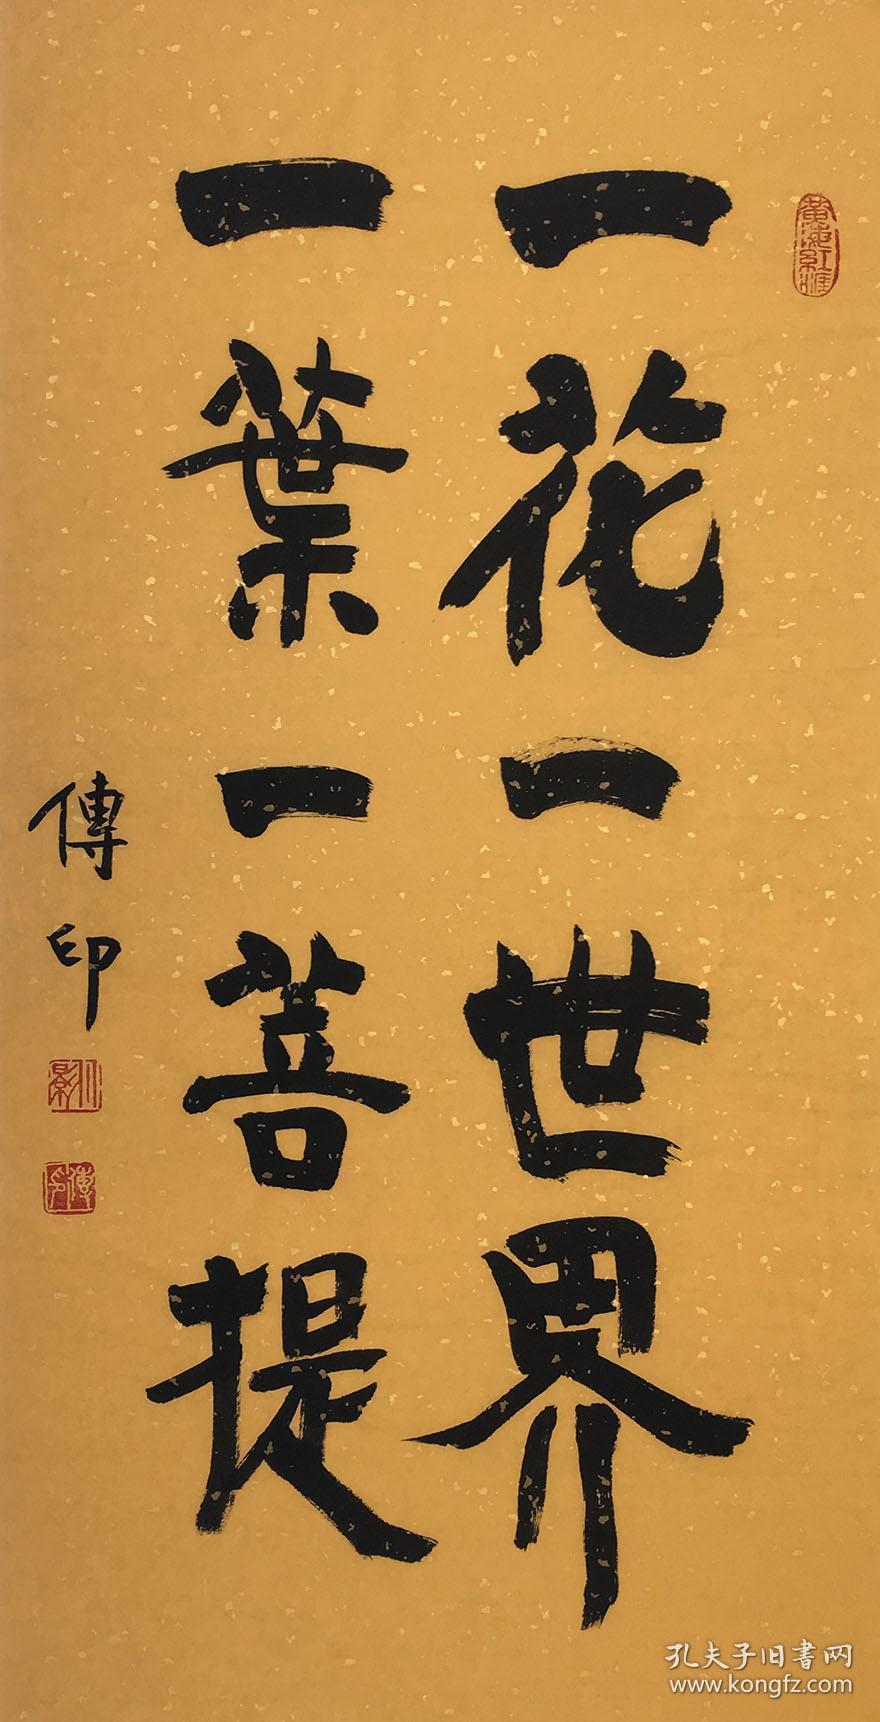 一花一世界
一葉一菩提
傳印
孔夫子旧书网
www.kongfz.com